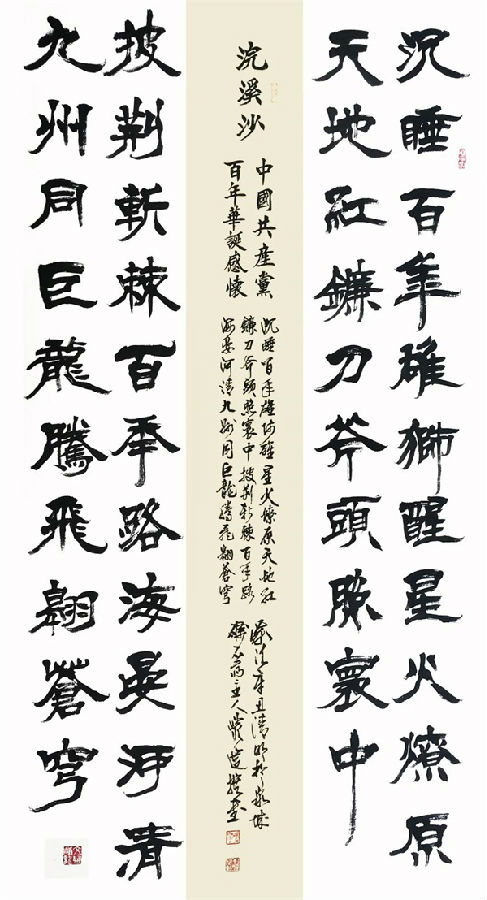 沉睡百年雄獅醒星火燎原
天地紅鐮刀斧頭照寰中
浣溪沙
中國共產黨
百年華誕感懷
沉睡百年雄獅醒星火燎原天地紅
鐮刀斧頭照寰中披荆斬棘百年路
海晏河清九州同巨龍騰飛翱蒼穹
歲次辛丑清明於泉城
齋主人
披荆斬棘百年路海晏河清
九州同巨龍騰飛翱蒼穹